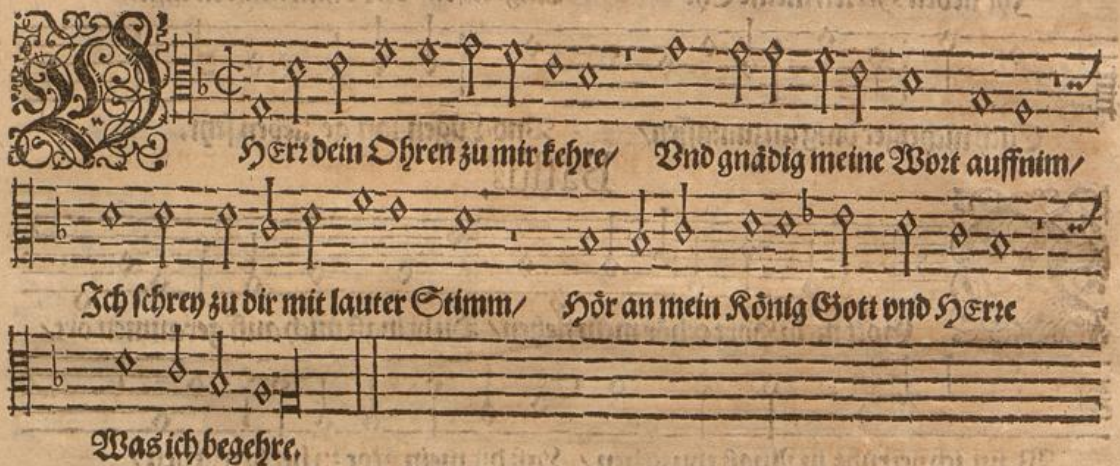 HErr dein Ohren zu mir kehre/ Vnd gnädig meine Wort auffnim/
Ich schrey zu dir mit lauter Stimm/ Hör an mein König Gott vnd HErre
Was ich begehre.